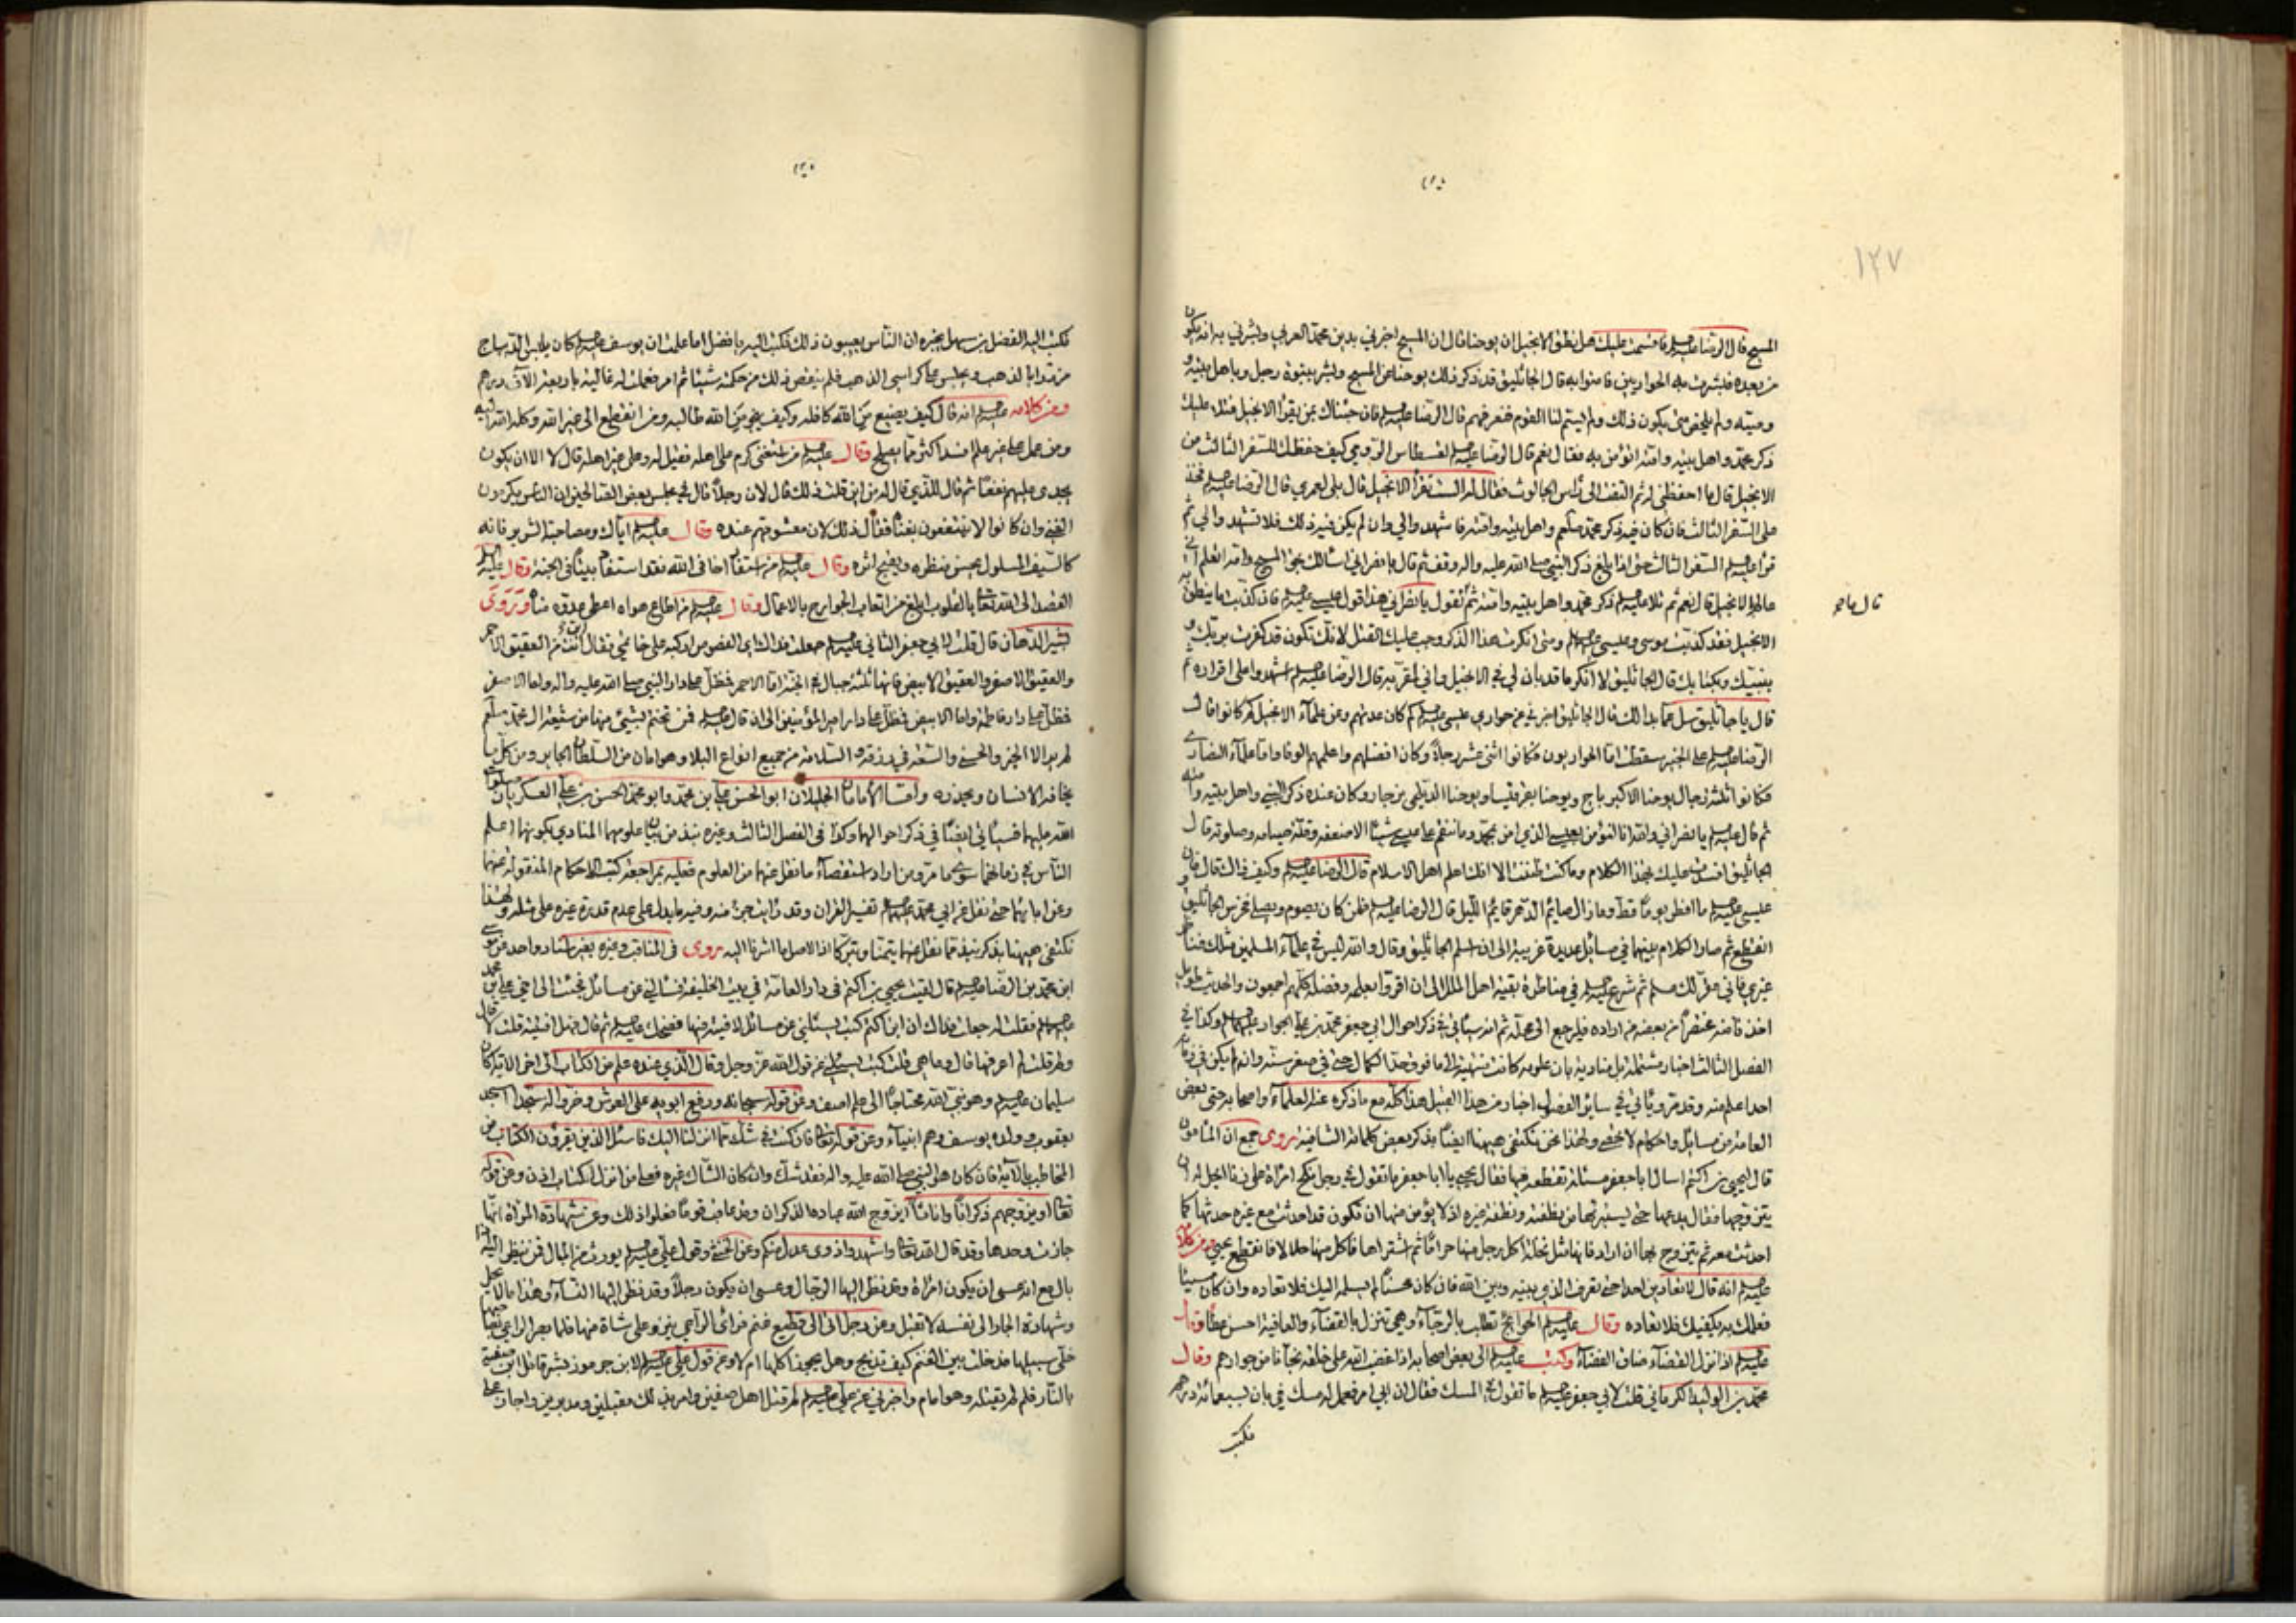 ١٢٧
المسيح قال الرضا عليه السلم فاقسمت عليك هل نطق الانجيل ان يوحنا قال ان المسيح اخبرني بدين محمد العربي وبشرني به انه يكون
من بعده فبشرت به الحواريين فامنوا به قال الجاثليق قد ذكر ذلك يوحنا عن المسيح وبشر بنبوة رجل وباهل بيته و
وصيته ولم يلخص متى يكون ذلك ولم يسم لنا القوم فنعرفهم قال الرضا عليه السلم فان جئناك بمن يقرأ الانجيل فتلا عليك
ذكر محمد واهل بيته وامته اتؤمن به فقال نعم قال الرضا عليه السلم لقسطاس الرومي كيف حفظك للسفر الثالث من
الانجيل قال ما احفظني له ثم التفت الى رأس الجالوت فقال له الست تقرأ الانجيل قال بلى لعمري قال الرضا عليه السلم فخذ
على السفر الثالث فان كان فيه ذكر محمد صلعم واهل بيته وامته فاشهدوا لي وان لم يكن فيه ذلك فلا تشهدوا لي ثم
قرأ عليه السلم السفر الثالث حتى اذا بلغ ذكر النبي صلى الله عليه واله وقف ثم قال يا نصراني اسألك بحق المسيح وامه اتعلم اني
عالم بالانجيل قال نعم ثم تلا عليه السلم ذكر محمد واهل بيته وامته ثم تقول يا نصراني هذا قول عيسى عليه السلم فان كذبت ما ينطق به
قال ما هو
الانجيل فقد كذبت موسى وعيسى عليهما السلم ومتى انكرت هذا الذكر وجب عليك القتل لانك تكون قد كفرت بربك و
بنبيك وبكتابك قال الجاثليق لا انكر ما قد بان لي في الانجيل واني لمقر به قال الرضا عليه السلم اشهدوا على اقراره ثم
قال يا جاثليق سل عما بدا لك قال الجاثليق اخبرني عن حواري عيسى عليه السلم كم كان عدتهم وعن علماء الانجيل كم كانوا قال
الرضا عليه السلم على الخبير سقطت اما الحواريون فكانوا اثنى عشر رجلاً وكان افضلهم واعلمهم الوقا واما علماء النصارى
فكانوا ثلثة رجال يوحنا الاكبر باج ويوحنا بقرقيسا ويوحنا الديلمي بزجار وكان عنده ذكر النبي واهل بيته وامته
ثم قال عليه السلم يا نصراني والله انا لنؤمن بعيسى الذي امن بمحمد وما ننقم على عيسى شيئا الا ضعفه وقلة صيامه وصلوته قال
الجاثليق افسدت عليك بهذا الكلام وما كنت ظننت الا انك اعلم اهل الاسلام قال الرضا عليه السلم وكيف ذاك قال فان
عيسى عليه السلم ما افطر يوماً قط وما زال صائم الدهر قائم الليل قال الرضا عليه السلم فلمن كان يصوم ويصلي فخرس الجاثليق و
انقطع ثم صار الكلام بينهما في مسائل عديدة غريبة الى ان اسلم الجاثليق وقال والله ليس في علماء المسلمين مثلك
غيري فاني مقر لك مسلم ثم شرع عليه السلم في مناظرة بقية اهل الملل الى ان اقروا بعلمه وفضله كلهم اجمعون والحديث طويل
اخذنا منه مختصراً من بعضه فمن اراده فليرجع الى محله ثم انه سيأتي في ذكر احوال ابي جعفر محمد بن علي الجواد عليهما السلم وكذا في
الفصل الثالث اخبار مشتملة بل منادية بان علومه كانت منتهية الى ما فوق حد الكمال حتى في صغر سنه وانه لم يكن في زمانه
احدا علم منه وقد مر ويأتي في سابق الفصل اخبار من هذا القبيل هذا كله مع ما ذكره عند العلماء واصحابه حتى بعض
العامة من مسائل واحكام لا تخفى ولهذا نحن نكتفي هيهنا ايضاً بذكر بعض كلماته الشافية روى جمع ان المأمون
قال ليحيى بن اكثم اسأل ابا جعفر مسئلة تقطعه فيها فقال يحيى يا ابا جعفر ما تقول في رجل نكح امرأة على زنا ايحل له ان
يتزوجها فقال يدعها حتى يستبرئها من نطفته ونطفة غيره اذ لا يؤمن منها ان تكون قد احدثت مع غيره حدثا كما
احدثت معه ثم يتزوج بها ان اراد فانها مثل نخلة اكل رجل منها حراماً ثم اشتراها فاكل منها حلالا فانقطع يحيى ومن كلامه
عليه السلم انه قال لا تعادين احدا حتى تعرف الذي بينه وبين الله فان كان محسناً لم يسلمه اليك فلا تعاده وان كان مسيئا
فعلمك به يكفيك فلا تعاده وقال عليه السلم الحوائج تطلب بالرجاء وهي تنزل بالقضاء والعافية احسن عطاء وقال
عليه السلم اذا نزل القضاء ضاق الفضاء وكتب عليه السلم الى بعض اصحابه اذا غضب الله على خلقه نجانا من جوارهم وقال
محمد بن الوليد الكرماني قلت لابي جعفر عليه السلم ما تقول في المسك فقال ان ابي امر فعمل له مسك في بان بسبعمائة درهم
فكتب
فكتب اليه الفضل بن سهل يخبره ان الناس يعيبون ذلك فكتب اليه يا فضل اما علمت ان يوسف عليه السلم كان يلبس الديباج
مزرداً بالذهب ويجلس على كراسي الذهب فلم ينقص ذلك من حكمته شيئا ثم امر فعملت له غالية باربعة الاف درهم
ومن كلامه عليه السلم انه قال كيف يضيع من الله كافله وكيف ينجو من الله طالبه ومن انقطع الى غير الله وكله الله اليه
ومن عمل على غير علم افسد اكثر مما يصلح وقال عليه السلم من استغنى كرم على اهله فقيل له وعلى غير اهله قال لا الا ان يكون
يجدى عليهم نفعاً ثم قال للذي قال له من اين قلت ذلك قال لان رجلاً قال في مجلس بعض الصالحين ان الناس يكرمون
الغني وان كانوا لا ينتفعون بغناه فقال ذلك لان معشوقهم عنده وقال عليه السلم اياك ومصاحبة الشرير فانه
كالسيف المسلول يحسن منظره ويقبح اثره وقال عليه السلم من استفاد اخا في الله فقد استفاد بيتاً في الجنة وقال عليه السلم
القصد الى الله تعالى بالقلوب ابلغ من اتعاب الجوارح بالاعمال وقال عليه السلم من اطاع هواه اعطى عدوه مناه وروى
بشير الدهان قال قلت لابي جعفر الثاني عليه السلم جعلت فداك اي الفصوص اركبه على خاتمي فقال اين انت من العقيق الاحمر
والعقيق الاصفر والعقيق الابيض فانها ثلثة جبال في الجنة اما الاحمر فمظل على دار النبي صلى الله عليه واله واما الاصفر
فمظل على دار فاطمة واما الابيض فمظل على دار امير المؤمنين الى ان قال عليه السلم فمن تختم بشيء منها من شيعة ال محمد صلعم
لم ير الا الخير والحسنى والسعة في رزقه والسلامة من جميع انواع البلا وهو امان من السلطان الجاير ومن كل ما
يخافه الانسان ويحذره واما الامامان الجليلان ابو الحسن علي بن محمد وابو محمد الحسن بن علي العسكريان صلوات
الله عليهما فسيأتي ايضاً في ذكر احوالهما وكذا في الفصل الثالث وغيره نبذ من بيان علومهما المنادي بكونهما اعلم
الناس في زمانهما سوى ما مر ومن اراد استقصاء ما نقل عنهما من العلوم فعليه بمراجعة كتب الاحكام المنقولة عنهما
وعن ابائهما حتى نقل عن ابي محمد عليه السلم تفسير القران وقد رأيت جزء منه وفيه ما يدل على عدم قدرة غيره على مثله ولهذا
نكتفي هيهنا بذكر نبذ مما نقل عنهما تيمنا وتبركا اذ الاصل ما اشرنا اليه روى في المناقب وغيره بغير اسناد واحد عن موسى
ابن محمد بن الرضا عليه السلم قال لقيت يحيى بن اكثم في دار العامة في بيت الخليفة فسألني عن مسائل فجئت الى اخي علي بن محمد
عليه السلم فقلت له جعلت فداك ان ابن اكثم كتب يسئلني عن مسائل لافتيه فيها فضحك عليه السلم ثم قال فهل افتيته قلت لا قال
ولم قلت لم اعرفها قال وما هي قلت كتب يسئلني عن قول الله عز وجل وقال الذي عنده علم من الكتاب الى اخر الاية اكان
سليمان عليه السلم وهو نبي الله محتاجاً الى علم اصف وعن قوله سبحانه ورفع ابويه على العرش وخروا له سجدا اسجد
يعقوب وولده ليوسف وهم انبياء وعن قوله تعالى فان كنت في شك مما انزلنا اليك فاسئل الذين يقرؤن الكتاب من
المخاطب بالاية فان كان هو النبي صلى الله عليه واله فقد شك وان كان الشاك غيره فعلى من انزل الكتاب اذن وعن قوله
تعالى او يزوجهم ذكراناً واناثاً ايزوج الله عباده الذكران وقد عاقب قوما فعلوا ذلك وعن شهادة المرأة انها
جازت وحدها وقد قال الله تعالى واشهدوا ذوى عدل منكم وعن الخنثى وقول علي عليه السلم يورث من المبال فمن ينظر اليه اذا
بال مع انه عسى ان يكون امرأة وقد نظر اليها الرجال وعسى ان يكون رجلاً وقد نظر اليها النساء وهذا ما لا يحل
وشهادة الجار الى نفسه لا تقبل وعن رجل اتى الى قطيع غنم فرأى الراعي ينزو على شاة منها فلما بصر الراعي بصاحبها
خلى سبيلها فدخلت بين الغنم كيف تذبح وهل يجوز اكلها ام لا وعن قول علي عليه السلم لابن جرموز بشر قاتل ابن صفية
بالنار فلم لم يقتله وهو امام واخبرني عن علي عليه السلم لم قتل اهل صفين وامر بذلك مقبلين ومدبرين واجاز على